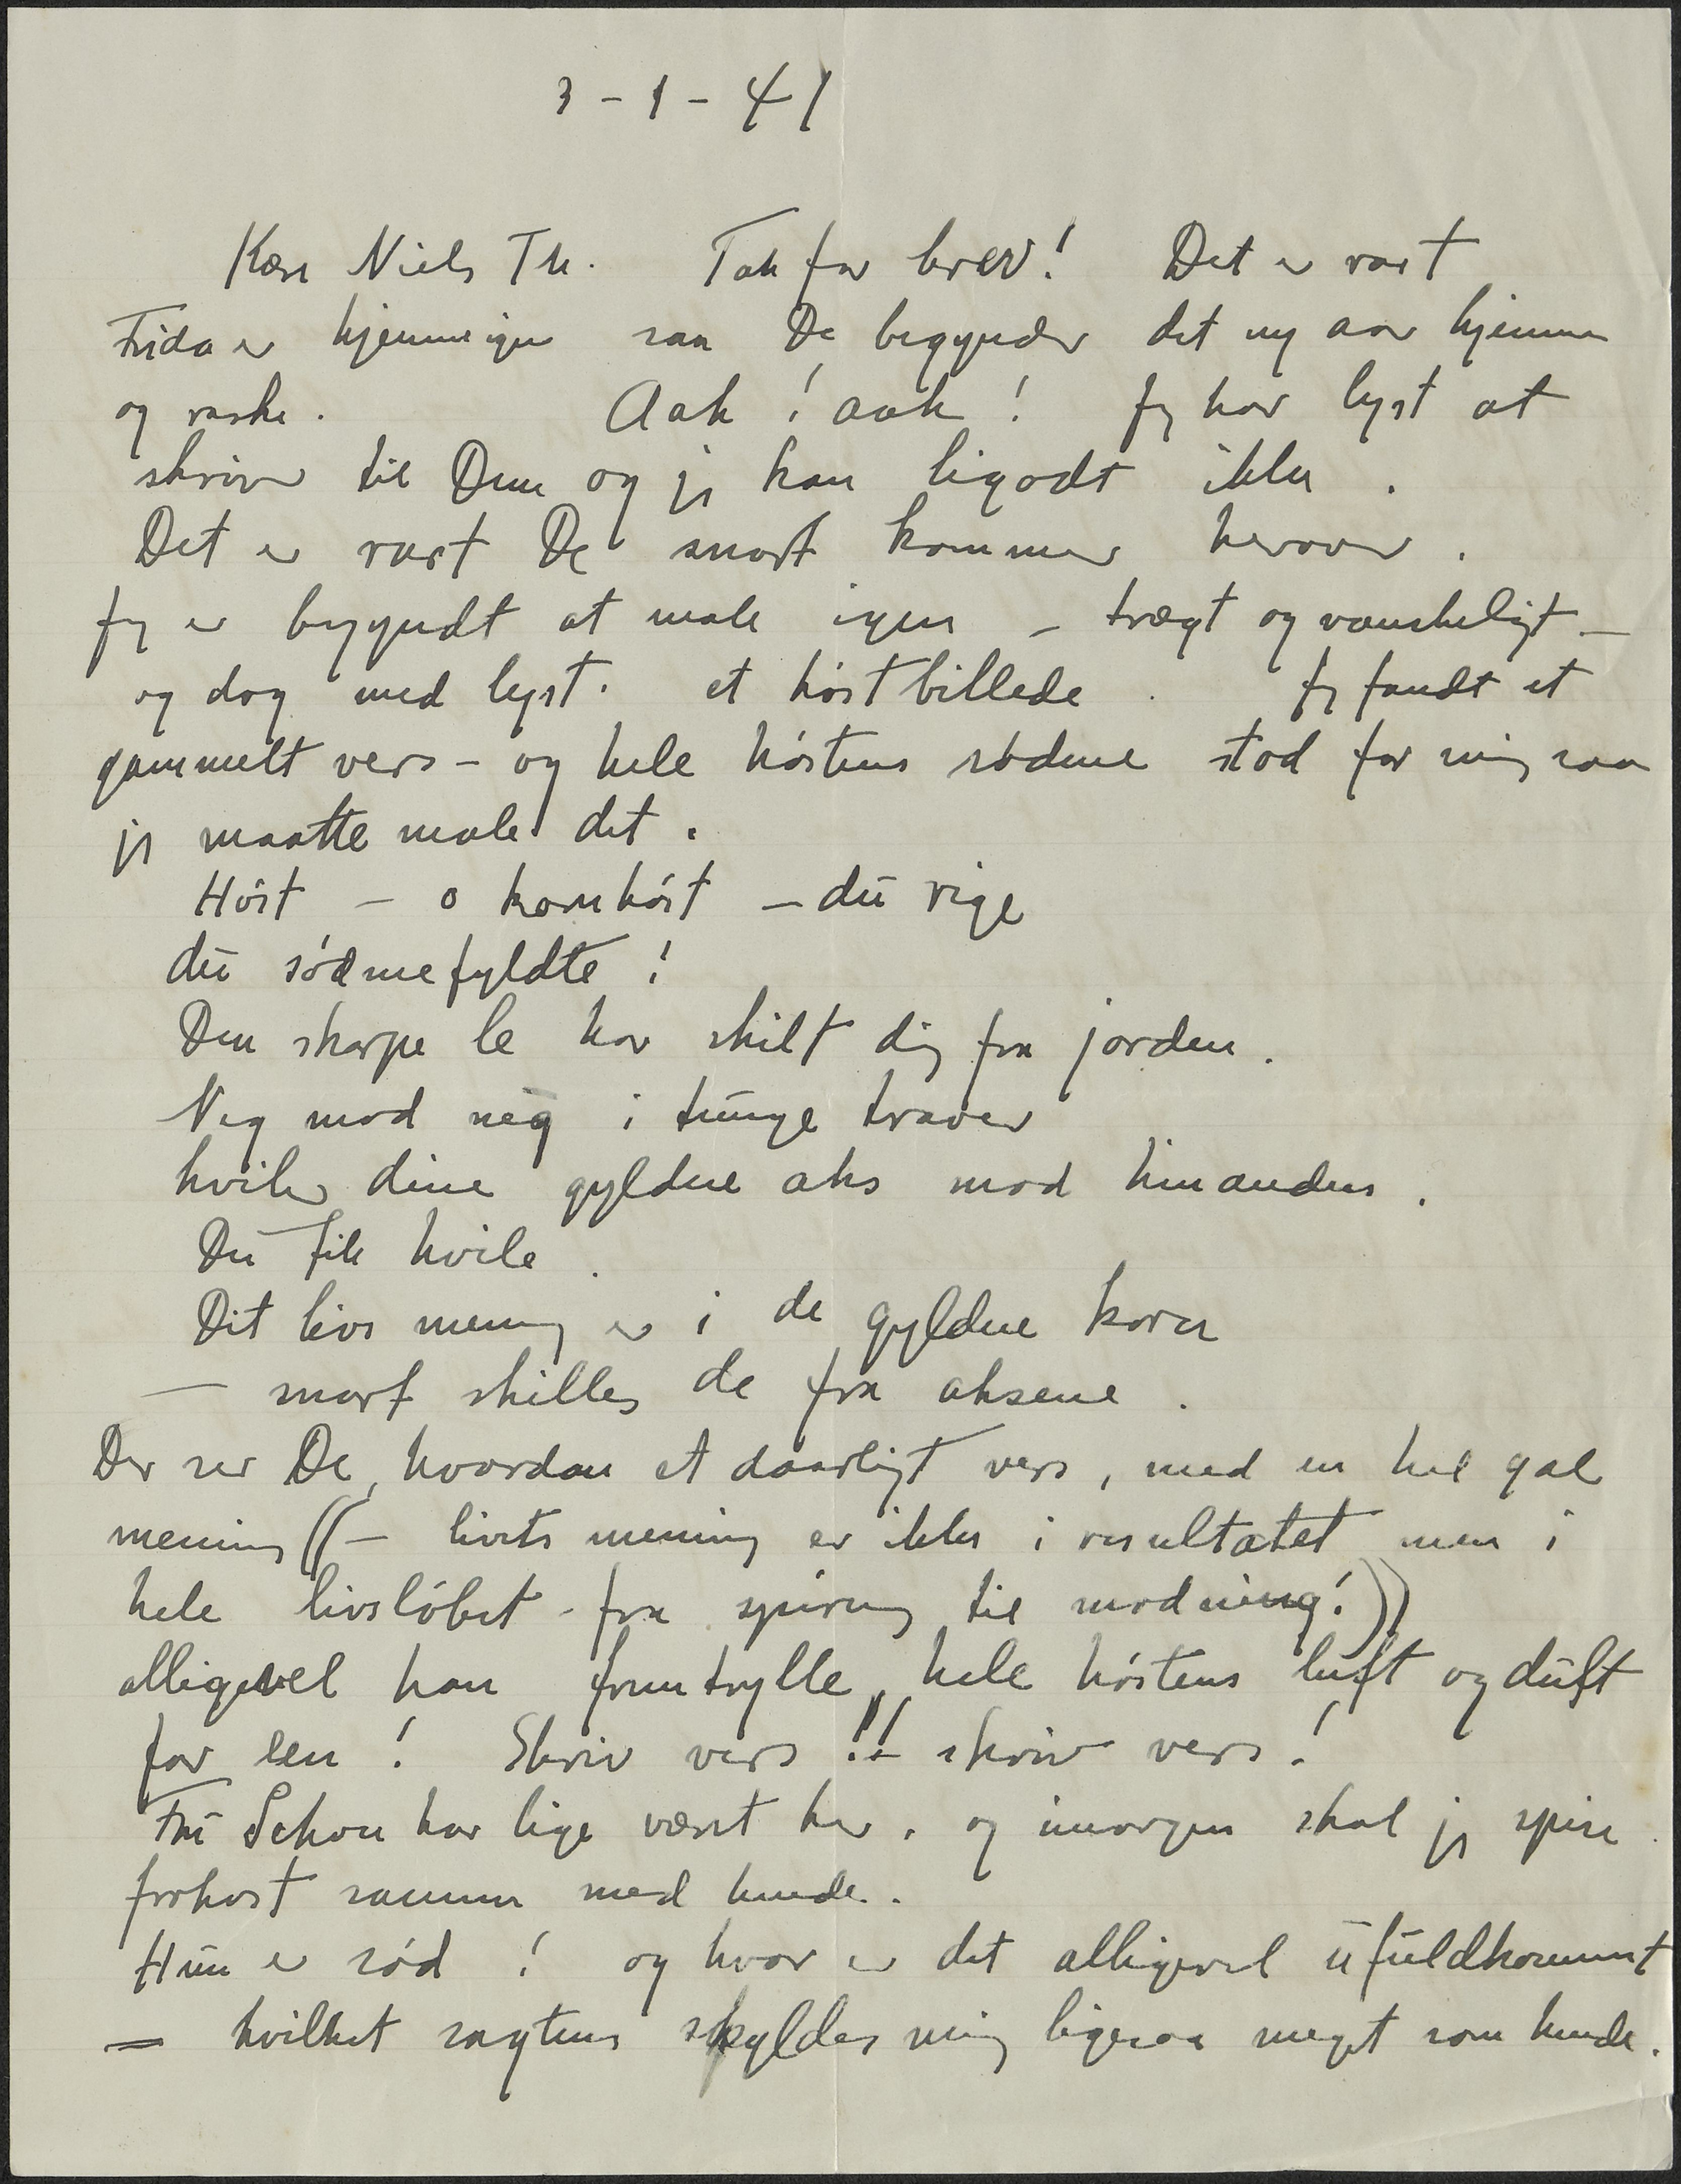 3-1-41
Kære Niels Th. Tak for brev! Det er rart
Frida er hjemme igen saa De begynder det ny aar hjemme
og raske. Aah! aah! Jeg har lyst at
skrive til Dem og jeg kan ligodt ikke.
Det er rart De snart kommer herover.
Jeg er begyndt at male igen - trægt og vanskeligt -
og dog med lyst. et høstbillede. Jeg fandt et
gammelt vers - og hele høstens sødme stod for mig saa
jeg maatte male det.
Høst - o kornhøst - du rige
du sødmefyldte!
Den skarpe le har skilt dig fra jorden.
Neg mod neg i tunge traver
hviler dine gyldne aks mod hinanden.
Du fik hvile.
Dit livs mening er i de gyldne korn
- snart skilles de fra aksene.
Der ser De, hvordan et daarligt vers, med en hel gal
mening ((- livets mening er ikke i resultatet men i
hele livsløbet - fra spiring til modning!))
alligevel kan fremtrylle hele høstens luft og duft
for een! Skriv vers!! - skriv vers!
Fru Schou har lige været her. og imorgen skal jeg spise
frokost sammen med hende.
Hun er sød! og hvor er det alligevel ufuldkomment
= hvilket sagtens skyldes mig ligesaa meget som hende.